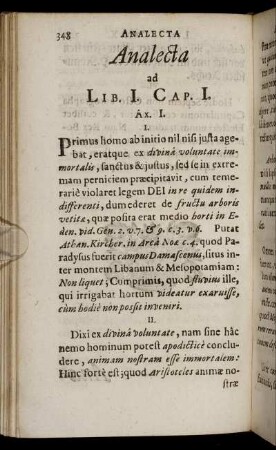 348 ANALECTA
Analecta
ad
LIB. I. CAP. I.
AX. I.
I.
Primus homo ab initio nil nisi justa age-
bat, eratque ex divinâ voluntate im-
mortalis, sanctus & justus, sed se in extre-
mam perniciem præcipitavit, cum teme-
rariè violaret legem DEI in re quidem in-
differenti, dum ederet de fructu arboris
vetitæ, quæ posita erat medio horti in E-
den. vid. Gen. 2. v. 7. & 9. c. 3. v. 6. Putat
Athan. Kircher. in Arcâ Noe c. 4. quod Pa-
radysus fuerit campus Damascenus, situs in-
ter montem Libanum & Mesopotamiam:
Non liquet; Comprimis, quod fluvius ille,
qui irrigabat hortum videatur exaruisse,
cum hodiè non possit inveniri.
II.
Dixi ex divinâ voluntate, nam sine hâc
nemo hominum potest apodicticè conclu-
dere, animam nostram esse immortalem:
Hinc fortè est; quod Aristoteles animæ no-
stræ